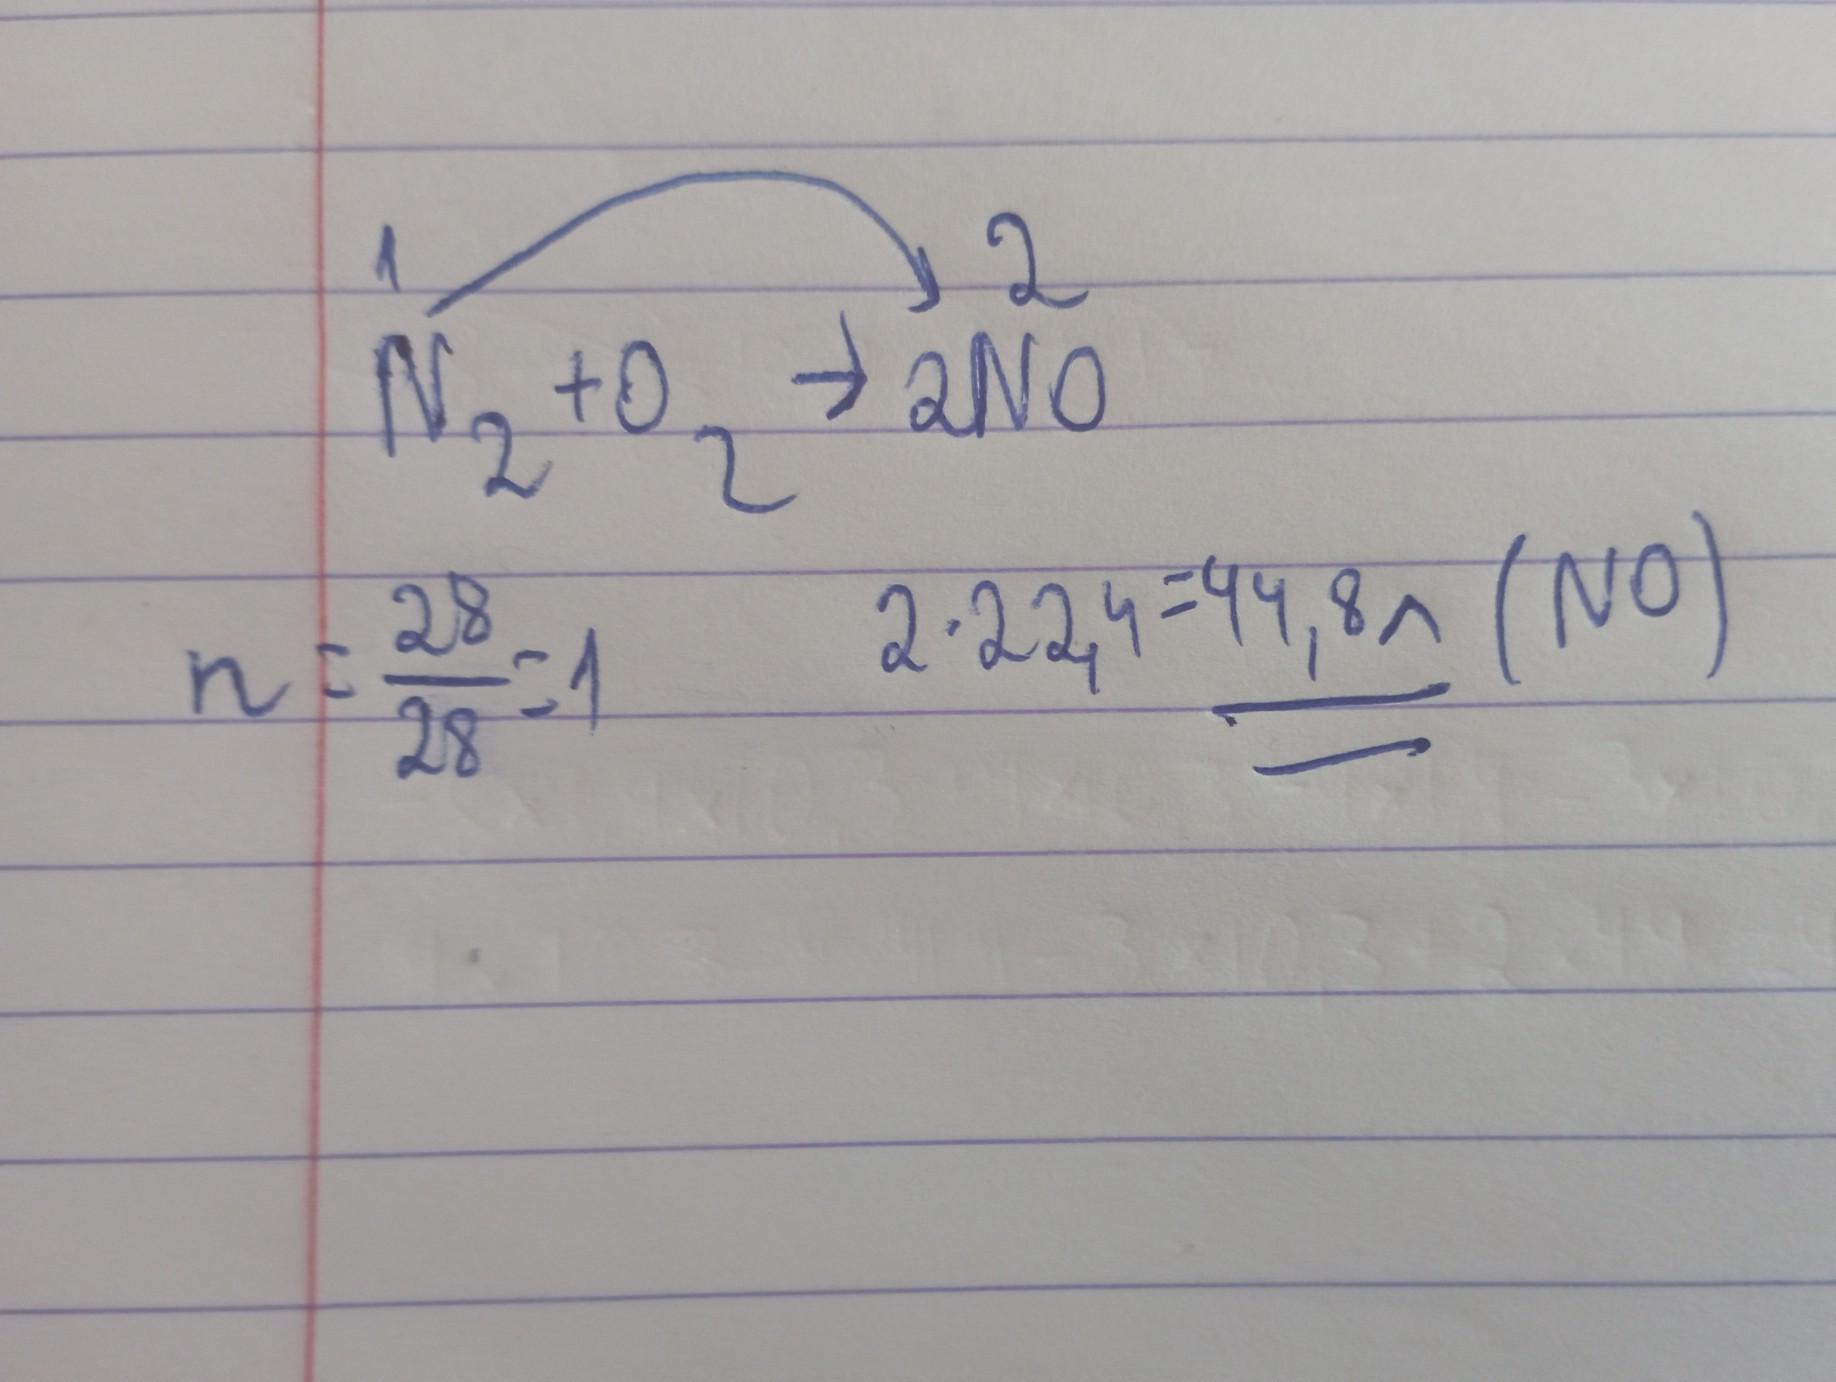 1 2
N₂ + O₂ → 2NO
n = 28/28 = 1 2·22,4=44,8л (NO)